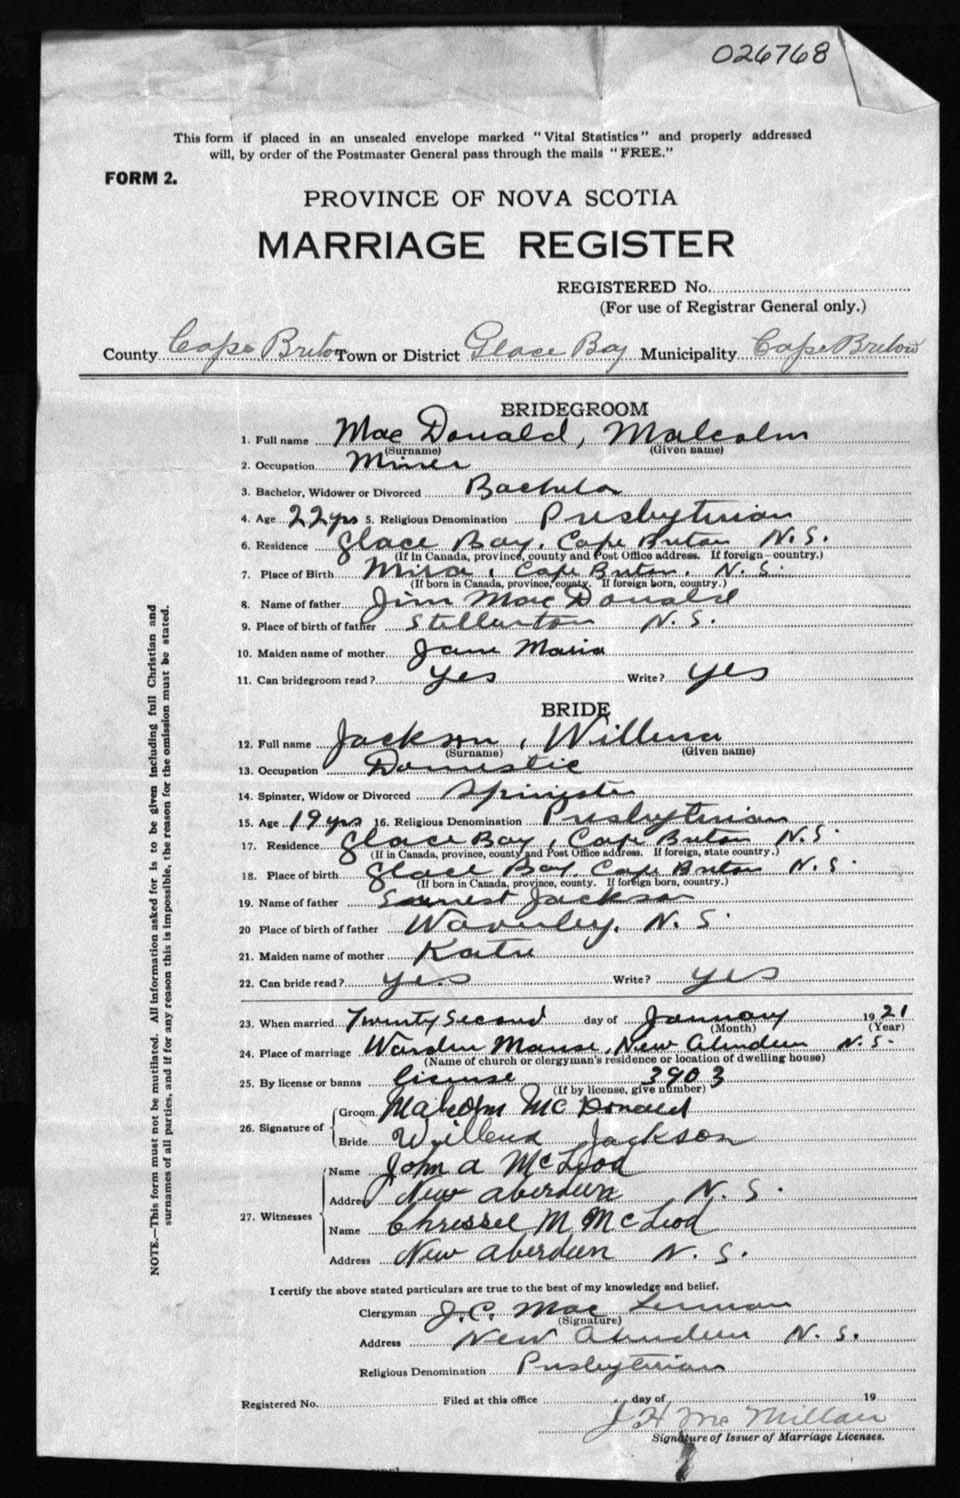 026768
This form if placed in an unsealed envelope marked "Vital Statistics" and properly addressed
will, by order of the Postmaster General pass through the mails "FREE."
FORM 2.
PROVINCE OF NOVA SCOTIA
MARRIAGE REGISTER
REGISTERED No.
(For use of Registrar General only.)
County Cape Breton Town or District Glace Bay Municipality Cape Breton
BRIDEGROOM
1. Full name Mac Donald, Malcolm
(Surname) (Given name)
2. Occupation Miner
3. Bachelor, Widower or Divorced Bachelor
4. Age 22 yrs 5. Religious Denomination Presbyterian
6. Residence Glace Bay, Cape Breton N.S.
(If in Canada, province, county and Post Office address. If foreign—country.)
7. Place of Birth Mira, Cape Breton, N.S.
(If born in Canada, province, county. If foreign born, country.)
8. Name of father Jim Mac Donald
9. Place of birth of father Stellarton N.S.
10. Maiden name of mother Jane Maria
11. Can bridegroom read? Yes Write? Yes
BRIDE
12. Full name Jackson, Willena
(Surname) (Given name)
13. Occupation Domestic
14. Spinster, Widow or Divorced Spinster
15. Age 19 yrs 16. Religious Denomination Presbyterian
17. Residence Glace Bay, Cape Breton N.S.
(If in Canada, province, county and Post Office address. If foreign, state country.)
18. Place of birth Glace Bay, Cape Breton N.S.
(If born in Canada, province, county. If foreign born, country.)
19. Name of father Earnest Jackson
20 Place of birth of father Waverley, N.S.
21. Maiden name of mother Katie
22. Can bride read? Yes Write? Yes
23. When married Twenty Second day of January 1921
(Month) (Year)
24. Place of marriage Warden Manse, New Aberdeen N.S.
(Name of church or clergyman's residence or location of dwelling house)
25. By license or banns license 3903
(If by license, give number)
26. Signature of Groom Malcolm McDonald
Bride Willena Jackson
27. Witnesses Name John A McLeod
Address New Aberdeen N.S.
Name Chressel M McLeod
Address New Aberdeen N.S.
I certify the above stated particulars are true to the best of my knowledge and belief.
Clergyman J.C. Mac Lennan
(Signature)
Address New Aberdeen N.S.
Religious Denomination Presbyterian
Registered No. Filed at this office day of 19
J H McMillan
Signature of Issuer of Marriage Licenses.
NOTE.—This form must not be mutilated. All information asked for is to be given including full Christian and
surnames of all parties, and if for any reason this is impossible, the reason for the omission must be stated.